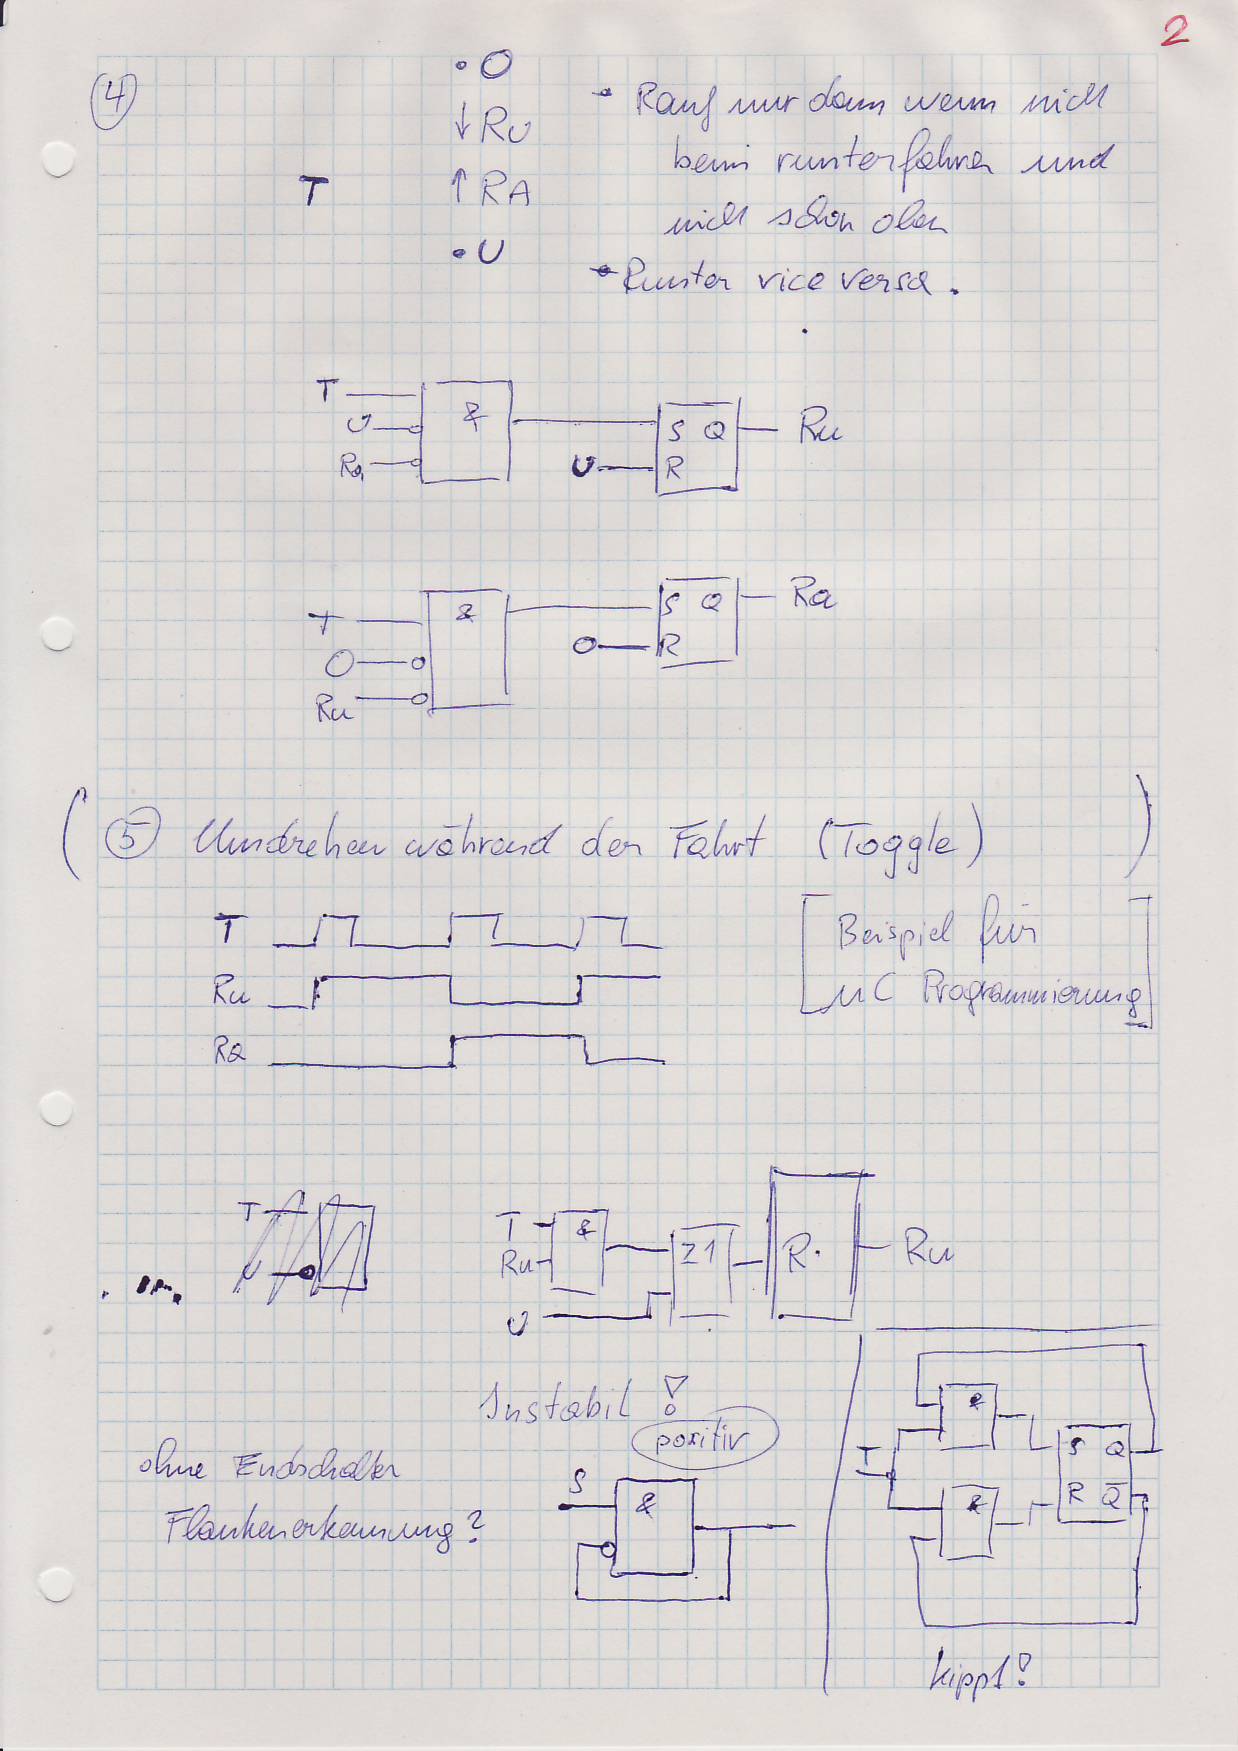 2
4
• O
↓ RU
T
↑ RA
• U
• Rauf nur dann wenn nicht
beim runterfahren und
nicht schon oben
• Runter vice versa.
T
U
Ra
&
U
S Q
R
Ru
T
O
Ru
&
O
S Q
R
Ra
( 5 Umdrehen während der Fahrt (Toggle) )
T
Ru
Ra
[ Beispiel für
µC Programmierung ]
T
U
T
Ru
U
&
≥1
R
Ru
Instabil !
positiv
ohne Endschalter
Flankenerkennung?
S
&
T
&
&
S Q
R Q̅
kippt!